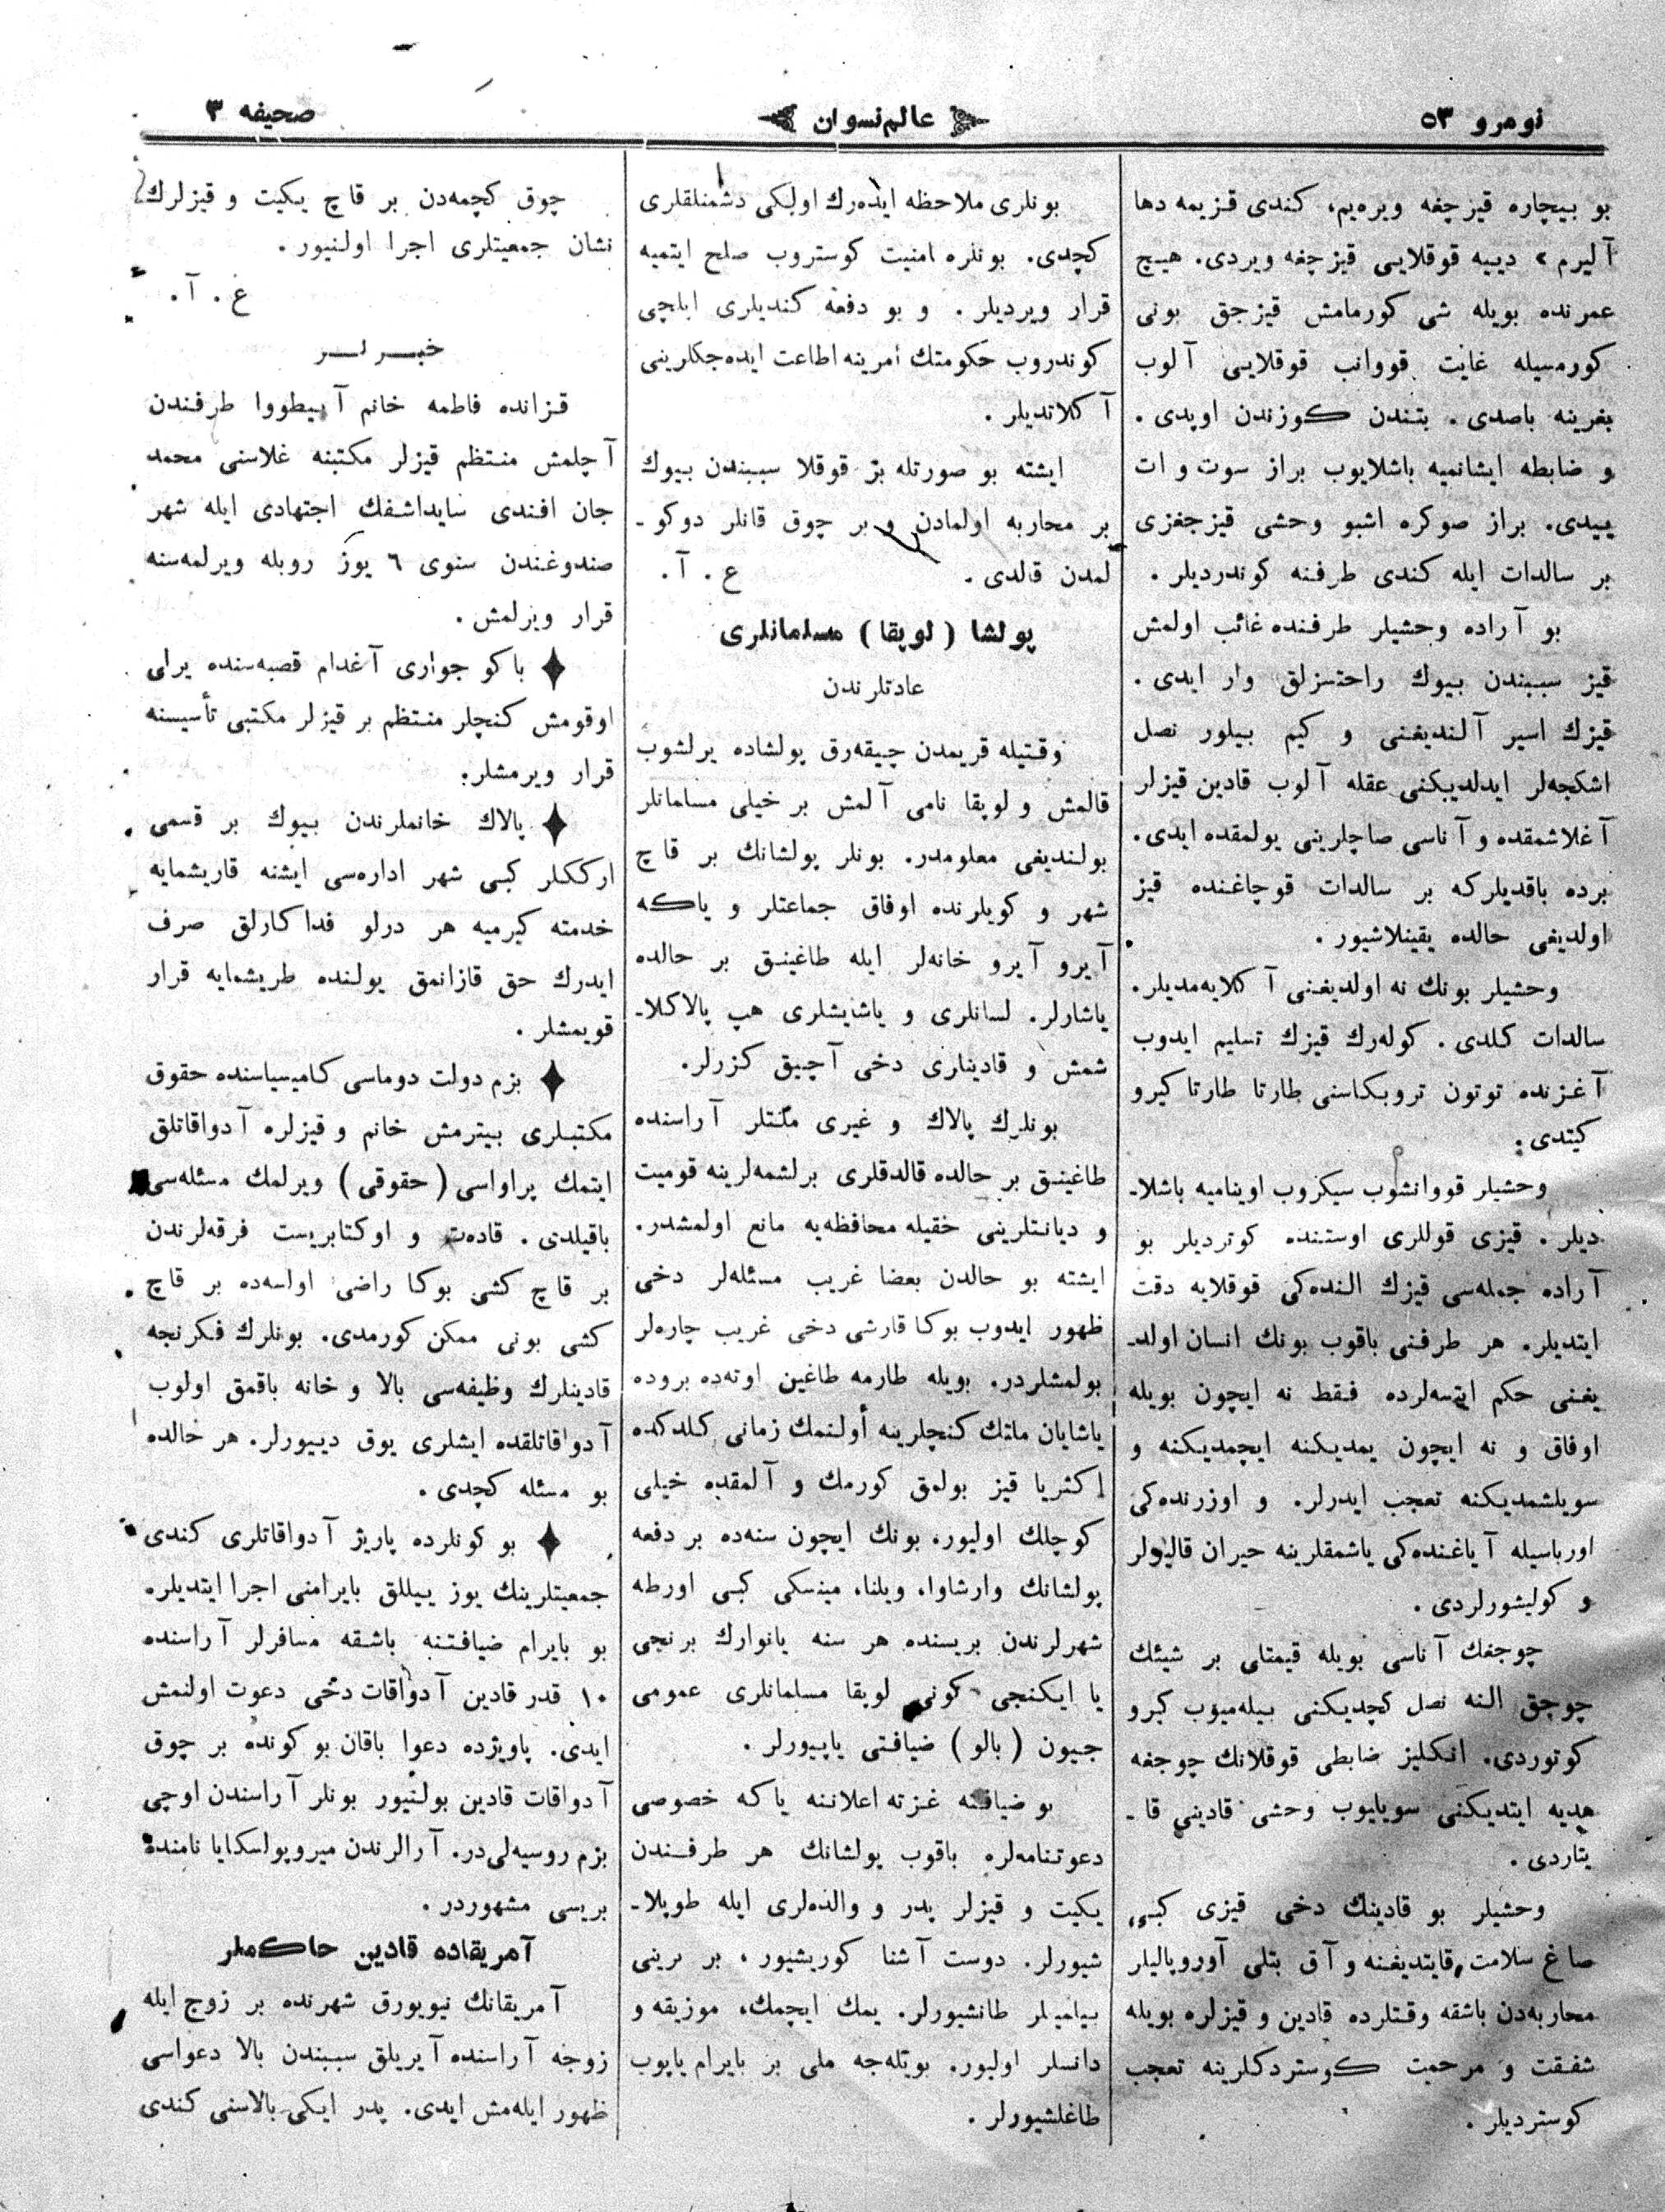 نومرو ٥٣
عالم نسوان
صحيفه ٣
بو بيچاره قيزچغه ويره‌يم، كندى قزيمه دها
آليرم » دييه قوقلايى قيزچغه ويردى. هيچ
عمرنده بويله شى كورمامش قيزجق بونى
كورمسيله غايت قووانب قوقلايى آلوب
بغرينه باصدى. بتندن كوزندن اوپدى.
و ضابطه ايشانميه باشلايوب براز سوت و ات
ييدى. براز صوكره اشبو وحشى قيزجغزى
بر سالدات ايله كندى طرفنه كوندرديلر.
بو آراده وحشيلر طرفنده غائب اولمش
قيز سببندن بيوك راحتسزلق وار ايدى.
قيزك اسير آلنديغنى و كيم بيلور نصل
اشكجه‌لر ايدلديكنى عقله آلوب قادين قيزلر
آغلاشمقده و آناسى صاچلرينى يولمقده ايدى.
برده باقديلركه بر سالدات قوچاغنده قيز
اولديغى حالده يقينلاشيور.
وحشيلر بونك نه اولديغنى آكلايه‌مديلر.
سالدات كلدى. كوله‌رك قيزك تسليم ايدوب
آغزنده توتون تروبكاسنى طارتا طارتا كيرو
كيتدى:
وحشيلر قووانشوب سيكروب اويناميه باشلا-
ديلر. قيزى قوللرى اوستنده كوترديلر بو
آراده جمله‌سى قيزك النده‌كى قوقلايه دقت
ايتديلر. هر طرفنى باقوب بونك انسان اولد-
يغنى حكم ايتسه‌لرده فقط نه ايچون بويله
اوفاق و نه ايچون يمديكنه ايچمديكنه و
سويلشمديكنه تعجب ايدرلر. و اوزرنده‌كى
اورباسيله آياغنده‌كى ياشمقلرينه حيران قاليورلر
و كوليشورلردى.
چوجغك آناسى بويله قيمتلى بر شيئك
چوجق النه نصل كچديكنى بيله‌ميوب كيرو
كوتوردى. انكليز ضابطى قوقلانك چوجغه
هديه ايتديكنى سويليوب وحشى قادينى قا-
يتاردى.
وحشيلر بو قادينك دخى قيزى كبى
صاغ سلامت قايتديغنه و آق بتلى آوروپاليلر
محاربه‌دن باشقه وقتلرده قادين و قيزلره بويله
شفقت و مرحمت كوستردكلرينه تعجب
كوسترديلر.
بونلرى ملاحظه ايده‌رك اولكى دشمنلقلرى
كچدى. بونلره امنيت كوستروب صلح ايتميه
قرار ويرديلر. و بو دفعه كنديلرى ايلچى
كوندروب حكومتك امرينه اطاعت ايده‌جكلرينى
آكلاتديلر.
ايشته بو صورتله بر قوقلا سببندن بيوك
بر محاربه اولمادن و بر چوق قانلر دوكو-
لمدن قالدى. ع. آ.
پولشا (لوپقا) مسلمانلرى
عادتلرندن
وقتيله قريمدن چيقه‌رق پولشاده يرلشوب
قالمش و لوپقا نامى آلمش بر خيلى مسلمانلر
بولنديغى معلومدر. بونلر پولشانك بر قاچ
شهر و كويلرنده اوفاق جماعتلر و ياكه
آيرو آيرو خانه‌لر ايله طاغينق بر حالده
ياشارلر. لسانلرى و ياشايشلرى هپ پالاكلا-
شمش و قادينلرى دخى آچيق كزرلر.
بونلرك پالاك و غيرى ملتلر آراسنده
طاغينق بر حالده قالدقلرى برلشمه‌لرينه قوميت
و ديانتلرينى خقيله محافظه‌يه مانع اولمشدر.
ايشته بو حالدن بعضا غريب مسئله‌لر دخى
ظهور ايدوب بوكا قارشى دخى غريب چاره‌لر
بولمشلردر. بويله طارمه طاغين اوته‌ده بروده
ياشايان ملتك كنچلرينه أولنمك زمانى كلدكده
اكثريا قيز بولمق كورمك و آلمقده خيلى
كوچلك اوليور، بونك ايچون سنه‌ده بر دفعه
پولشانك وارشاوا، ويلنا، مينسكى كبى اورطه
شهرلرندن بريسنده هر سنه يانوارك برنجى
يا ايكنجى كونى لوپقا مسلمانلرى عمومى
جيون (بالو) ضيافتى ياپيورلر.
بو ضيافته غزته اعلاننه ياكه خصوصى
دعوتنامه‌لره باقوب پولشانك هر طرفندن
يكيت و قيزلر پدر و والده‌لرى ايله طوپلا-
شيورلر. دوست آشنا كوريشيور، بر برينى
بيلميلر طانشيورلر. يمك ايچمك، موزيقه و
دانسلر اوليور. بويله‌جه ملى بر بايرام ياپوب
طاغلشيورلر.
چوق كچمه‌دن بر قاچ يكيت و قيزلرك
نشان جمعيتلرى اجرا اولنيور.
ع. آ.
خبرلر
قزانده فاطمه خانم آييطووا طرفندن
آچلمش منتظم قيزلر مكتبنه غلاسنى محمد
جان افندى سايداشفك اجتهادى ايله شهر
صندوغندن سنوى ٦ يوز روبله ويرلمه‌سنه
قرار ويرلمش.
باكو جوارى آغدام قصبه‌سنده يرلى
اوقومش كنچلر منتظم بر قيزلر مكتبى تأسيسنه
قرار ويرمشلر:
پالاك خانملرندن بيوك بر قسمى
اركككلر كبى شهر اداره‌سى ايشنه قاريشمايه
خدمته كيرميه هر درلو فداكارلق صرف
ايدرك حق قازانمق يولنده طريشمايه قرار
قويمشلر.
بزم دولت دوماسى كاميسياسنده حقوق
مكتبلرى بيترمش خانم و قيزلره آدواقاتلق
ايتمك پراواسى (حقوقى) ويرلمك مسئله‌سى
باقيلدى. قاده‌ت و اوكتابريست فرقه‌لرندن
بر قاچ كشى بوكا راضى اولسه‌ده بر قاچ
كشى بونى ممكن كورمدى. بونلرك فكرنجه
قادينلرك وظيفه‌سى بالا و خانه باقمق اولوب
آدواقاتلقده ايشلرى يوق دييورلر. هر حالده
بو مسئله كچدى.
بو كونلرده پاريژ آدواقاتلرى كندى
جمعيتلرينك يوز ييللق بايرامنى اجرا ايتديلر.
بو بايرام ضيافتنه باشقه مسافرلر آراسنده
١٠ قدر قادين آدواقات دخى دعوت اولنمش
ايدى. پاويژده دعوا باقان بو كونده بر چوق
آدواقات قادين بولنيور بونلر آراسندن اوچى
بزم روسيه‌لى‌در. آرالرندن ميروپولسكايا نامنده
بريسى مشهوردر.
آمريقاده قادين حاكملر
آمريقانك نيويورق شهرنده بر زوج ايله
زوجه آراسنده آيريلق سببندن بالا دعواسى
ظهور ايله‌مش ايدى. پدر ايكى بالاسنى كندى